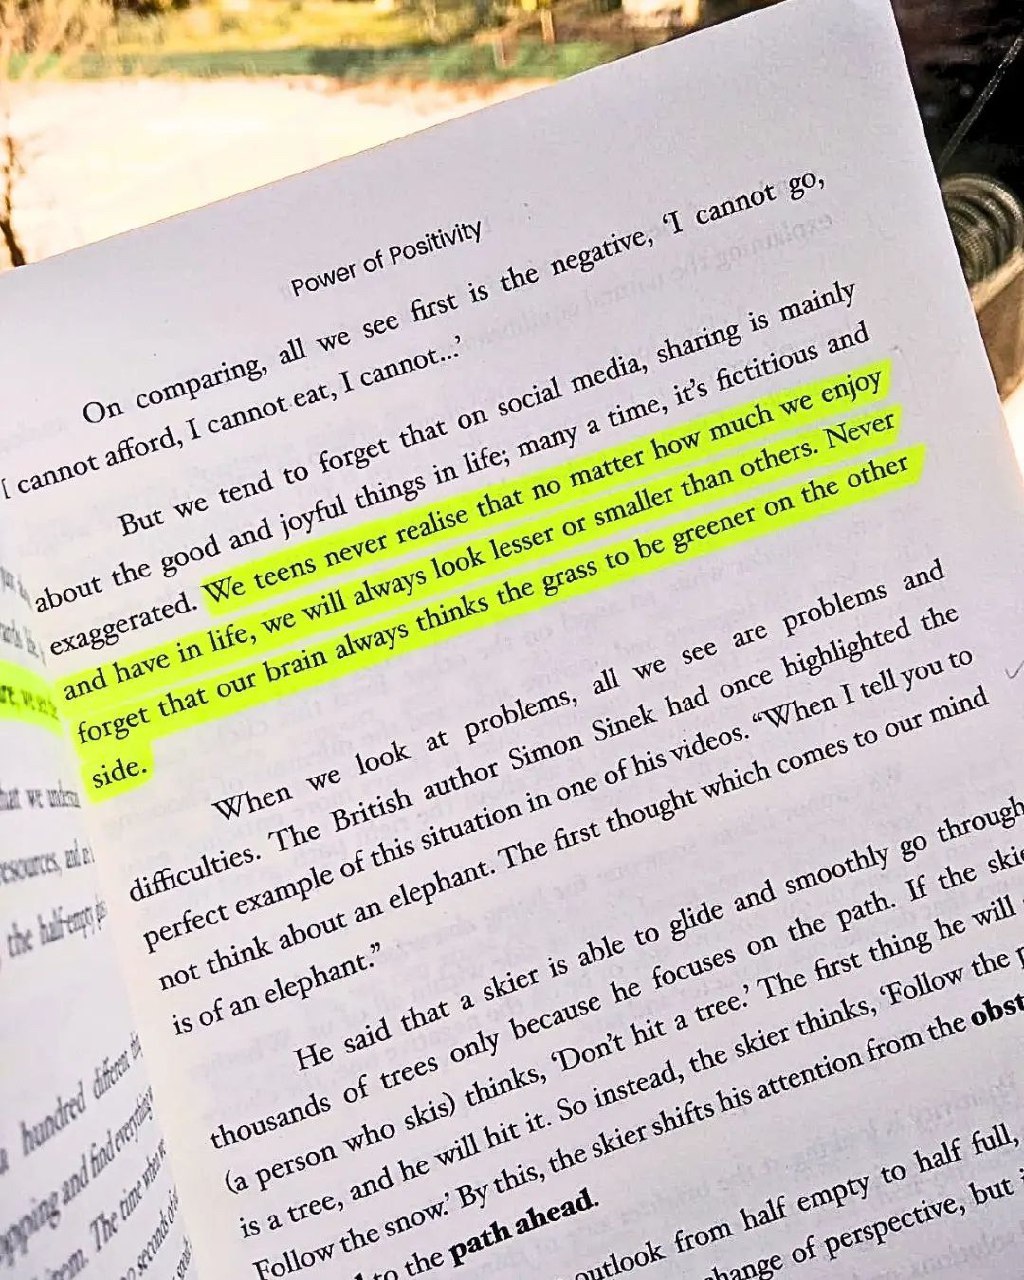 Power of Positivity
On comparing, all we see first is the negative, ‘I cannot go,
I cannot afford, I cannot eat, I cannot...’
But we tend to forget that on social media, sharing is mainly
about the good and joyful things in life; many a time, it’s fictitious and
exaggerated. We teens never realise that no matter how much we enjoy
and have in life, we will always look lesser or smaller than others. Never
forget that our brain always thinks the grass to be greener on the other
side.
When we look at problems, all we see are problems and
difficulties. The British author Simon Sinek had once highlighted the
perfect example of this situation in one of his videos. “When I tell you to
not think about an elephant. The first thought which comes to our mind
is of an elephant.”
He said that a skier is able to glide and smoothly go through
thousands of trees only because he focuses on the path. If the
(a person who skis) thinks, ‘Don’t hit a tree.’ The first thing he will
is a tree, and he will hit it. So instead, the skier thinks, ‘Follow the
Follow the snow.’ By this, the skier shifts his attention from the
to the path ahead.
outlook from half empty to half full,
of perspective, but
hundred different
and find everything
The time
the half-empty